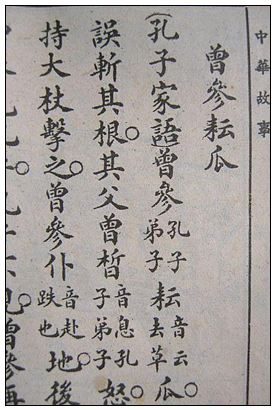 中華故事
曾參耘瓜
（孔子家語曾參孔子弟子耘音云去草瓜○
誤斬其根○其父曾晳音息孔子弟子怒○
持大杖擊之○曾參仆音赴跌也地○後